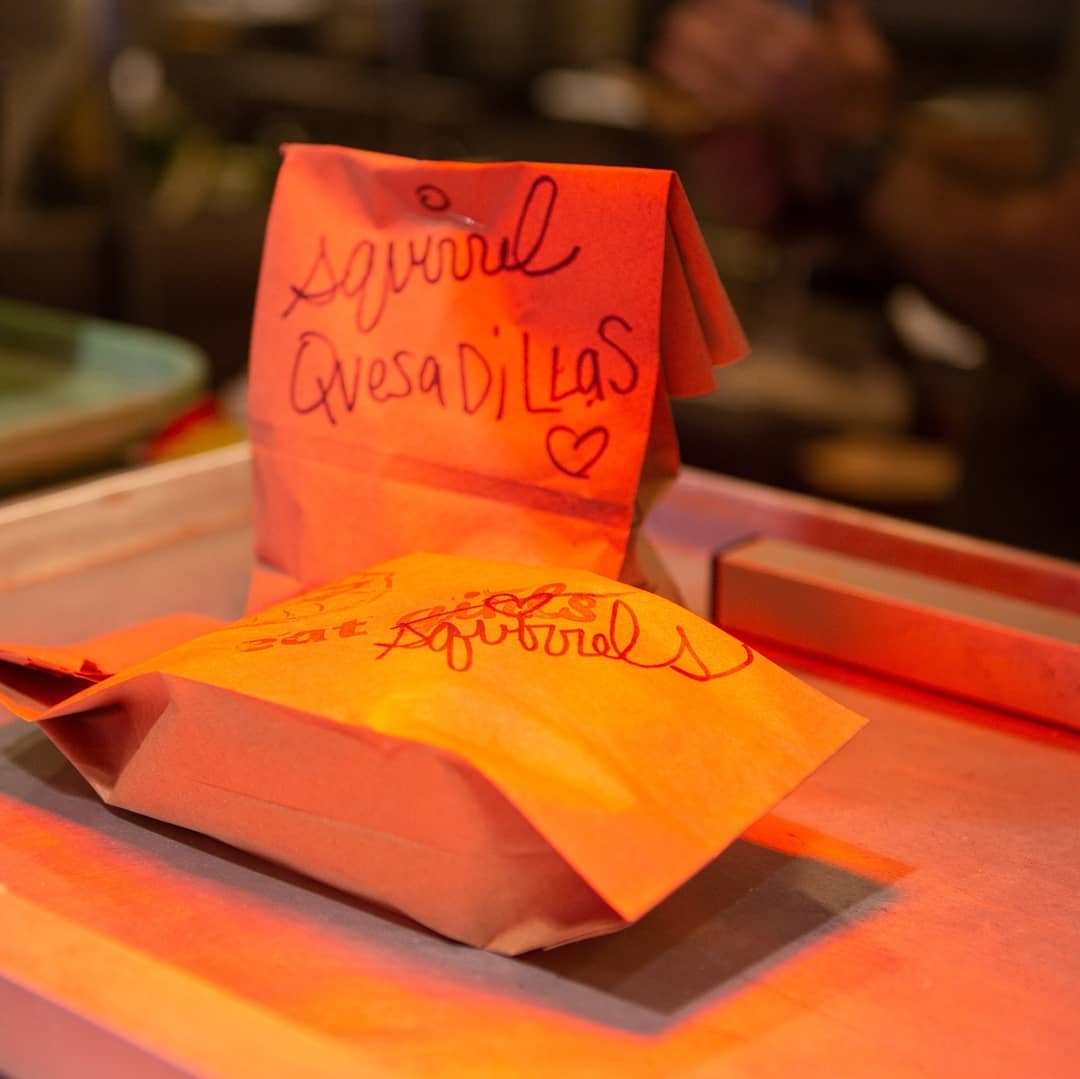 squirrel
QuesaDiLLaS
eat girls
squirrels